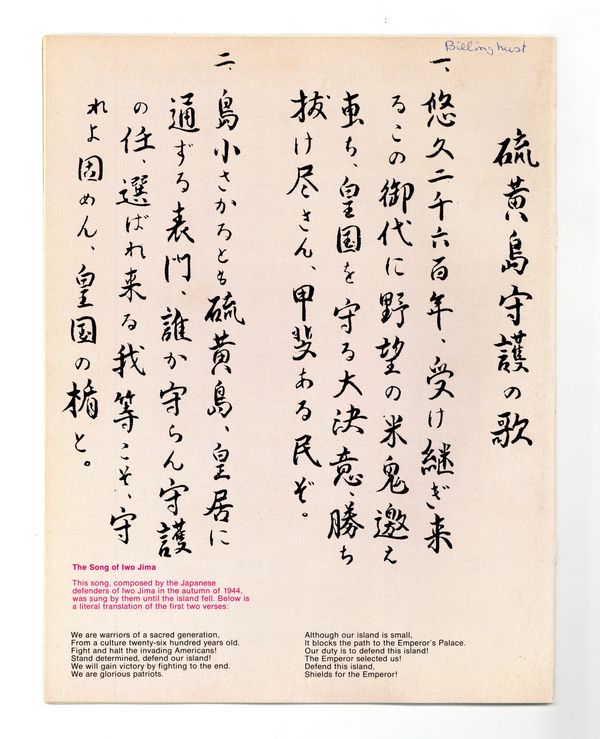 Billinghust
硫黄島守護の歌
一、悠久二千六百年、受け継ぎ来
るこの御代に野望の米鬼邀え
ち、皇国を守る大決意、勝ち
抜け尽さん、甲斐ある民ぞ。
二、島小さかろとも硫黄島、皇居に
通ずる表門、誰か守らん守護
の任、選ばれ来る我等こそ、守
れよ固めん、皇国の楯と。
The Song of Iwo Jima
This song, composed by the Japanese
defenders of Iwo Jima in the autumn of 1944,
was sung by them until the island fell. Below is
a literal translation of the first two verses:
We are warriors of a sacred generation,
From a culture twenty-six hundred years old.
Fight and halt the invading Americans!
Stand determined, defend our island!
We will gain victory by fighting to the end.
We are glorious patriots.
Although our island is small,
It blocks the path to the Emperor's Palace.
Our duty is to defend this island!
The Emperor selected us!
Defend this island,
Shields for the Emperor!